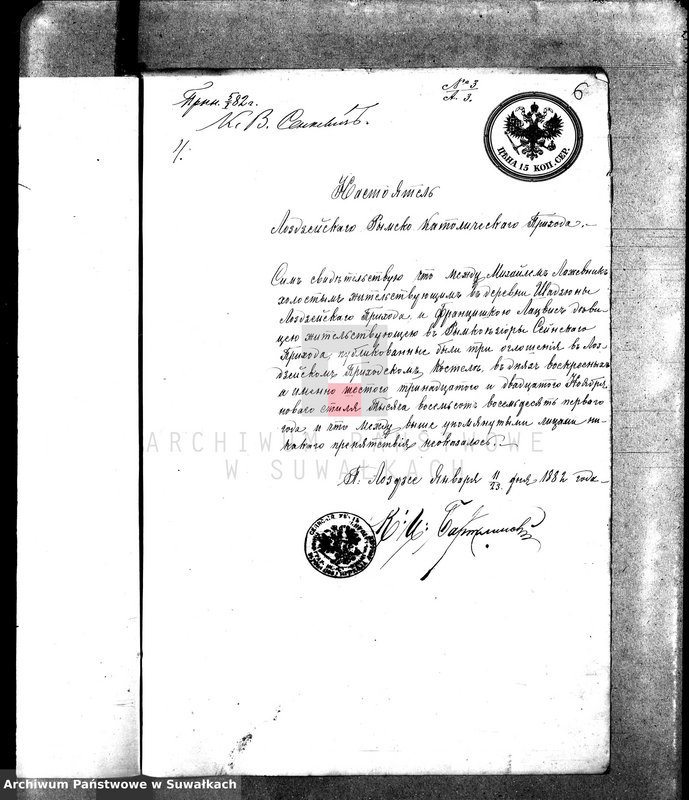 № 3
А. 3.
6
Прин. 5/1 82 г.
К. В. Сенкевичъ.
ЦѢНА 15 КОП. СЕР.
Настоятель
Лоздзейскаго Рымско Католическаго Прихода.
Симъ свидѣтельствую что между Михайлемъ Ложевник
холостымъ жительствующимъ въ деревни Шадзюны
Лоздзейскаго Прихода и Францишкою Лацвис дѣви-
цею жительствующею въ Сейнскаго
Прихода публикованные были три оглошенія въ Лоз-
дзейскомъ Приходскомъ Костелѣ, въ дняхъ воскресныхъ
а именно шестого тринадцатого и двадцатого Ноября
новаго стиля Тысяча восемьсотъ восемьдесятъ первого
года и что между выше упомянутыми лицами ни-
какого препятствія неоказалось.
ARCHIWUM PAŃSTWOWE
W SUWAŁKACH
В. Лоздзее Января 11/23 дня 1882 года
К. И.
Archiwum Państwowe w Suwałkach